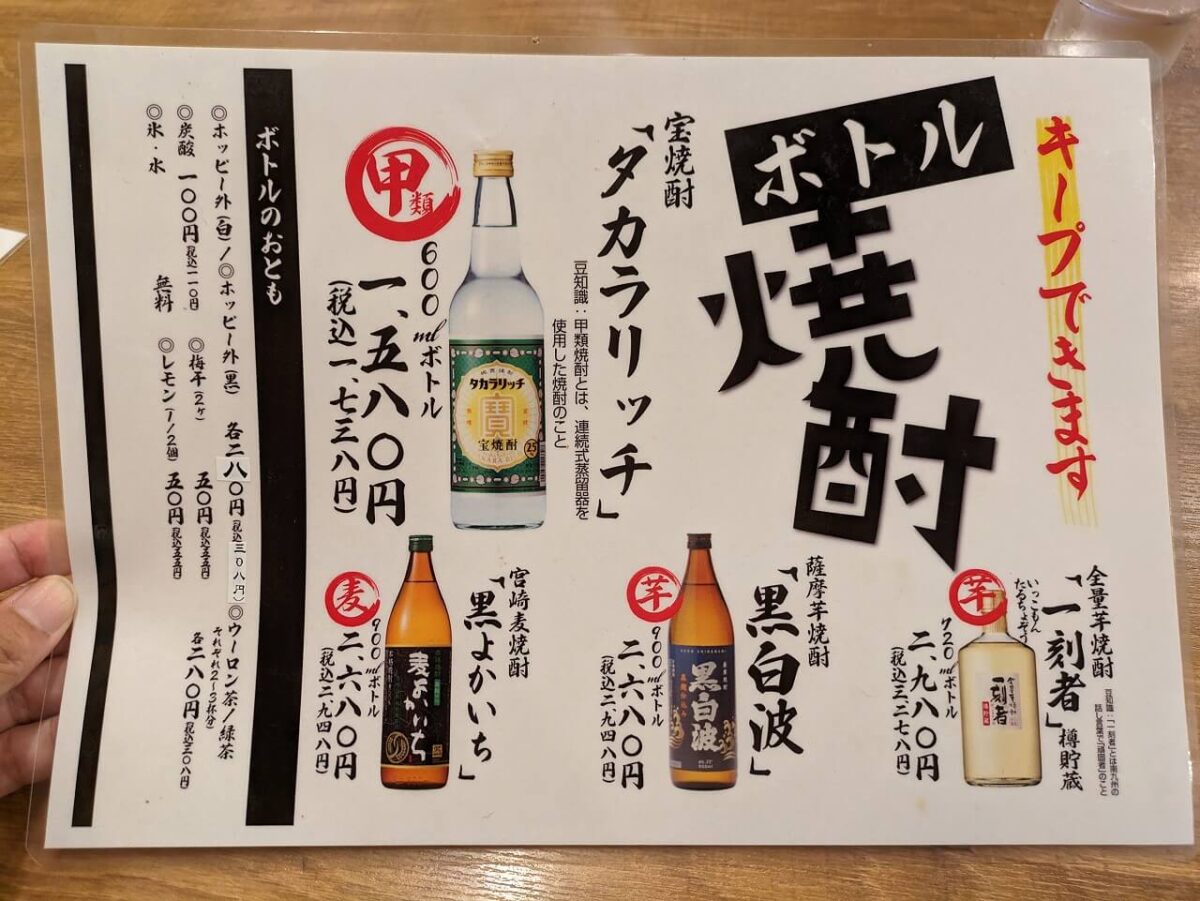 キープできます
ボトル
焼酎
宝焼酎
「タカラリッチ」
豆知識：甲類焼酎とは、連続式蒸留器を
使用した焼酎のこと
タカラリッチ
寶
宝焼酎
25
甲類
600mlボトル
一、五八〇円
(税込一、七三八円)
全量芋焼酎
「一刻者」樽貯蔵
いっこもん
たるちょぞう
豆知識：「一刻者」とは南九州の
話し言葉で「頑固者」のこと
一刻者
芋
720mlボトル
二、九八〇円
(税込三、二七八円)
薩摩芋焼酎
「黒白波」
黒白波
芋
900mlボトル
二、六八〇円
(税込二、九四八円)
宮崎麦焼酎
「黒よかいち」
麦よかいち
麦
900mlボトル
二、六八〇円
(税込二、九四八円)
ボトルのおとも
◎ホッピー外(白)/◎ホッピー外(黒) 各二八〇円 税込三〇八円)
◎ウーロン茶/緑茶
それぞれ2~3杯分)
各二八〇円 税込三〇八円
◎炭酸 一〇〇円 税込一一〇円
◎梅干(2ヶ) 五〇円 税込五五円
◎氷・水 無料
◎レモン(1/2個) 五〇円 税込五五円